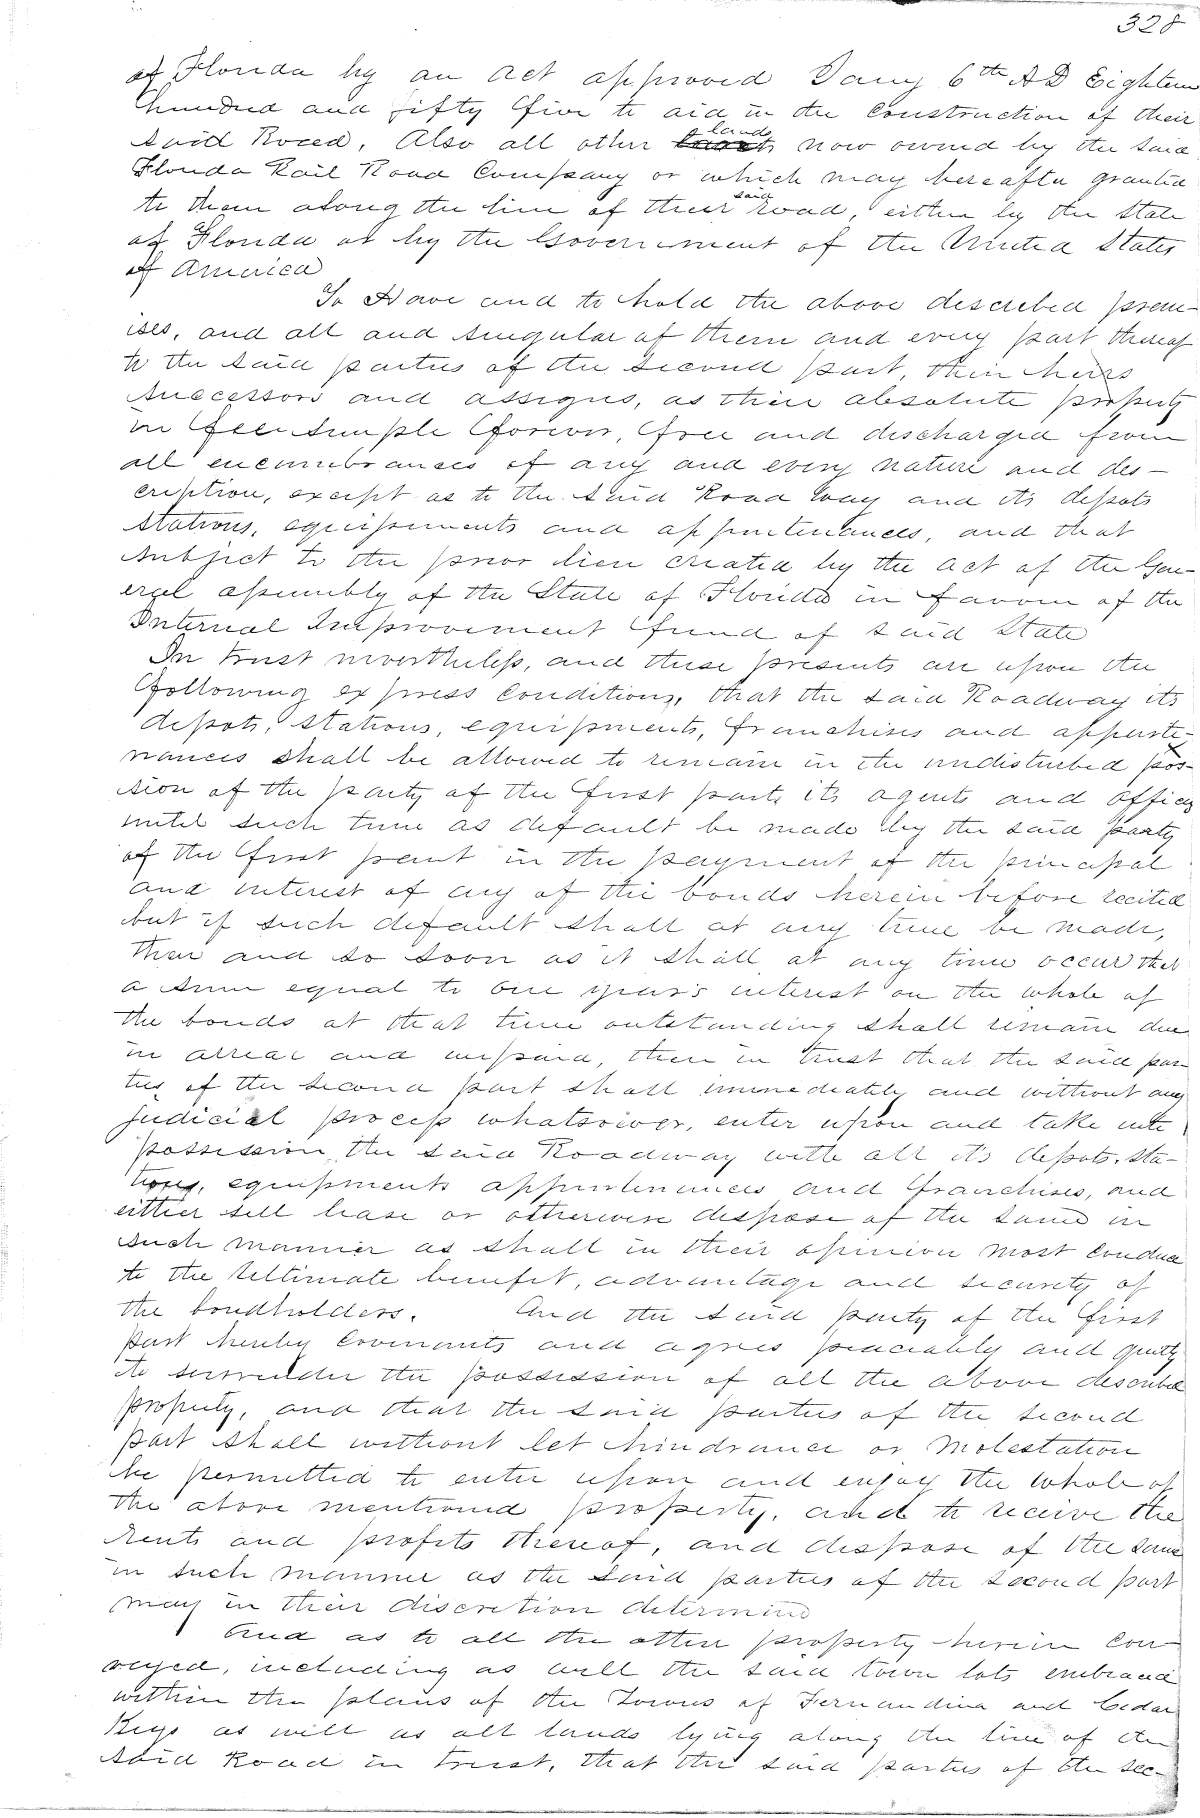 328
of Florida by an act approved Jany 6th AD Eighteen
hundred and fifty five to aid in the construction of their
said Road, Also all other lands now owned by the said
Florida Rail Road Company or which may hereafter granted
to them along the line of their said road, either by the State
of Florida or by the Government of the United States
of America
To Have and to hold the above described prem-
ises, and all and singular of them and every part thereof
to the said parties of the second part, their heirs
successors and assigns, as their absolute property
in fee simple forever, free and discharged from
all encumbrances of any and every nature and des-
cription, except as to the said Road way and its depots
stations, equipments and appurtenances, and that
subject to the prior lien created by the act of the Gen-
eral assembly of the State of Florida in favour of the
Internal Improvement fund of said State
In trust nevertheless, and these presents are upon the
following express conditions, that the said Roadway its
depots, stations, equipments, franchises and apparte-
nances shall be allowed to remain in the undisturbed pos-
sion of the party of the first part, its agents and officers
until such time as default be made by the said party
of the first part in the payment of the principal
and interest of any of the bonds herein before recited
but if such default shall at any time be made,
then and so soon as it shall at any time occur that
a sum equal to one year's interest on the whole of
the bonds at that time outstanding shall remain due
in arrear and unpaid, then in trust that the said par-
ties of the second part shall immediately and without any
judicial process whatsoever, enter upon and take into
possession the said Roadway with all its depots, sta-
tions, equipments appurtenances and franchises, and
either sell lease or otherwise dispose of the same in
such manner as shall in their opinion most conduce
to the ultimate benefit, advantage and security of
the bondholders. And the said party of the first
part hereby covenants and agrees peaceably and quietly
to surrender the possession of all the above described
property, and that the said parties of the second
part shall without let hindrance or molestation
be permitted to enter upon and enjoy the whole of
the above mentioned property, and to receive the
rents and profits thereof, and dispose of the same
in such manner as the said parties of the second part
may in their discretion determine
And as to all the other property herein con-
veyed, including as well the said town lots embraced
within the plans of the Towns of Fernandina and Cedar
Keys as well as all lands lying along the line of the
said Road in trust, that the said parties of the sec-